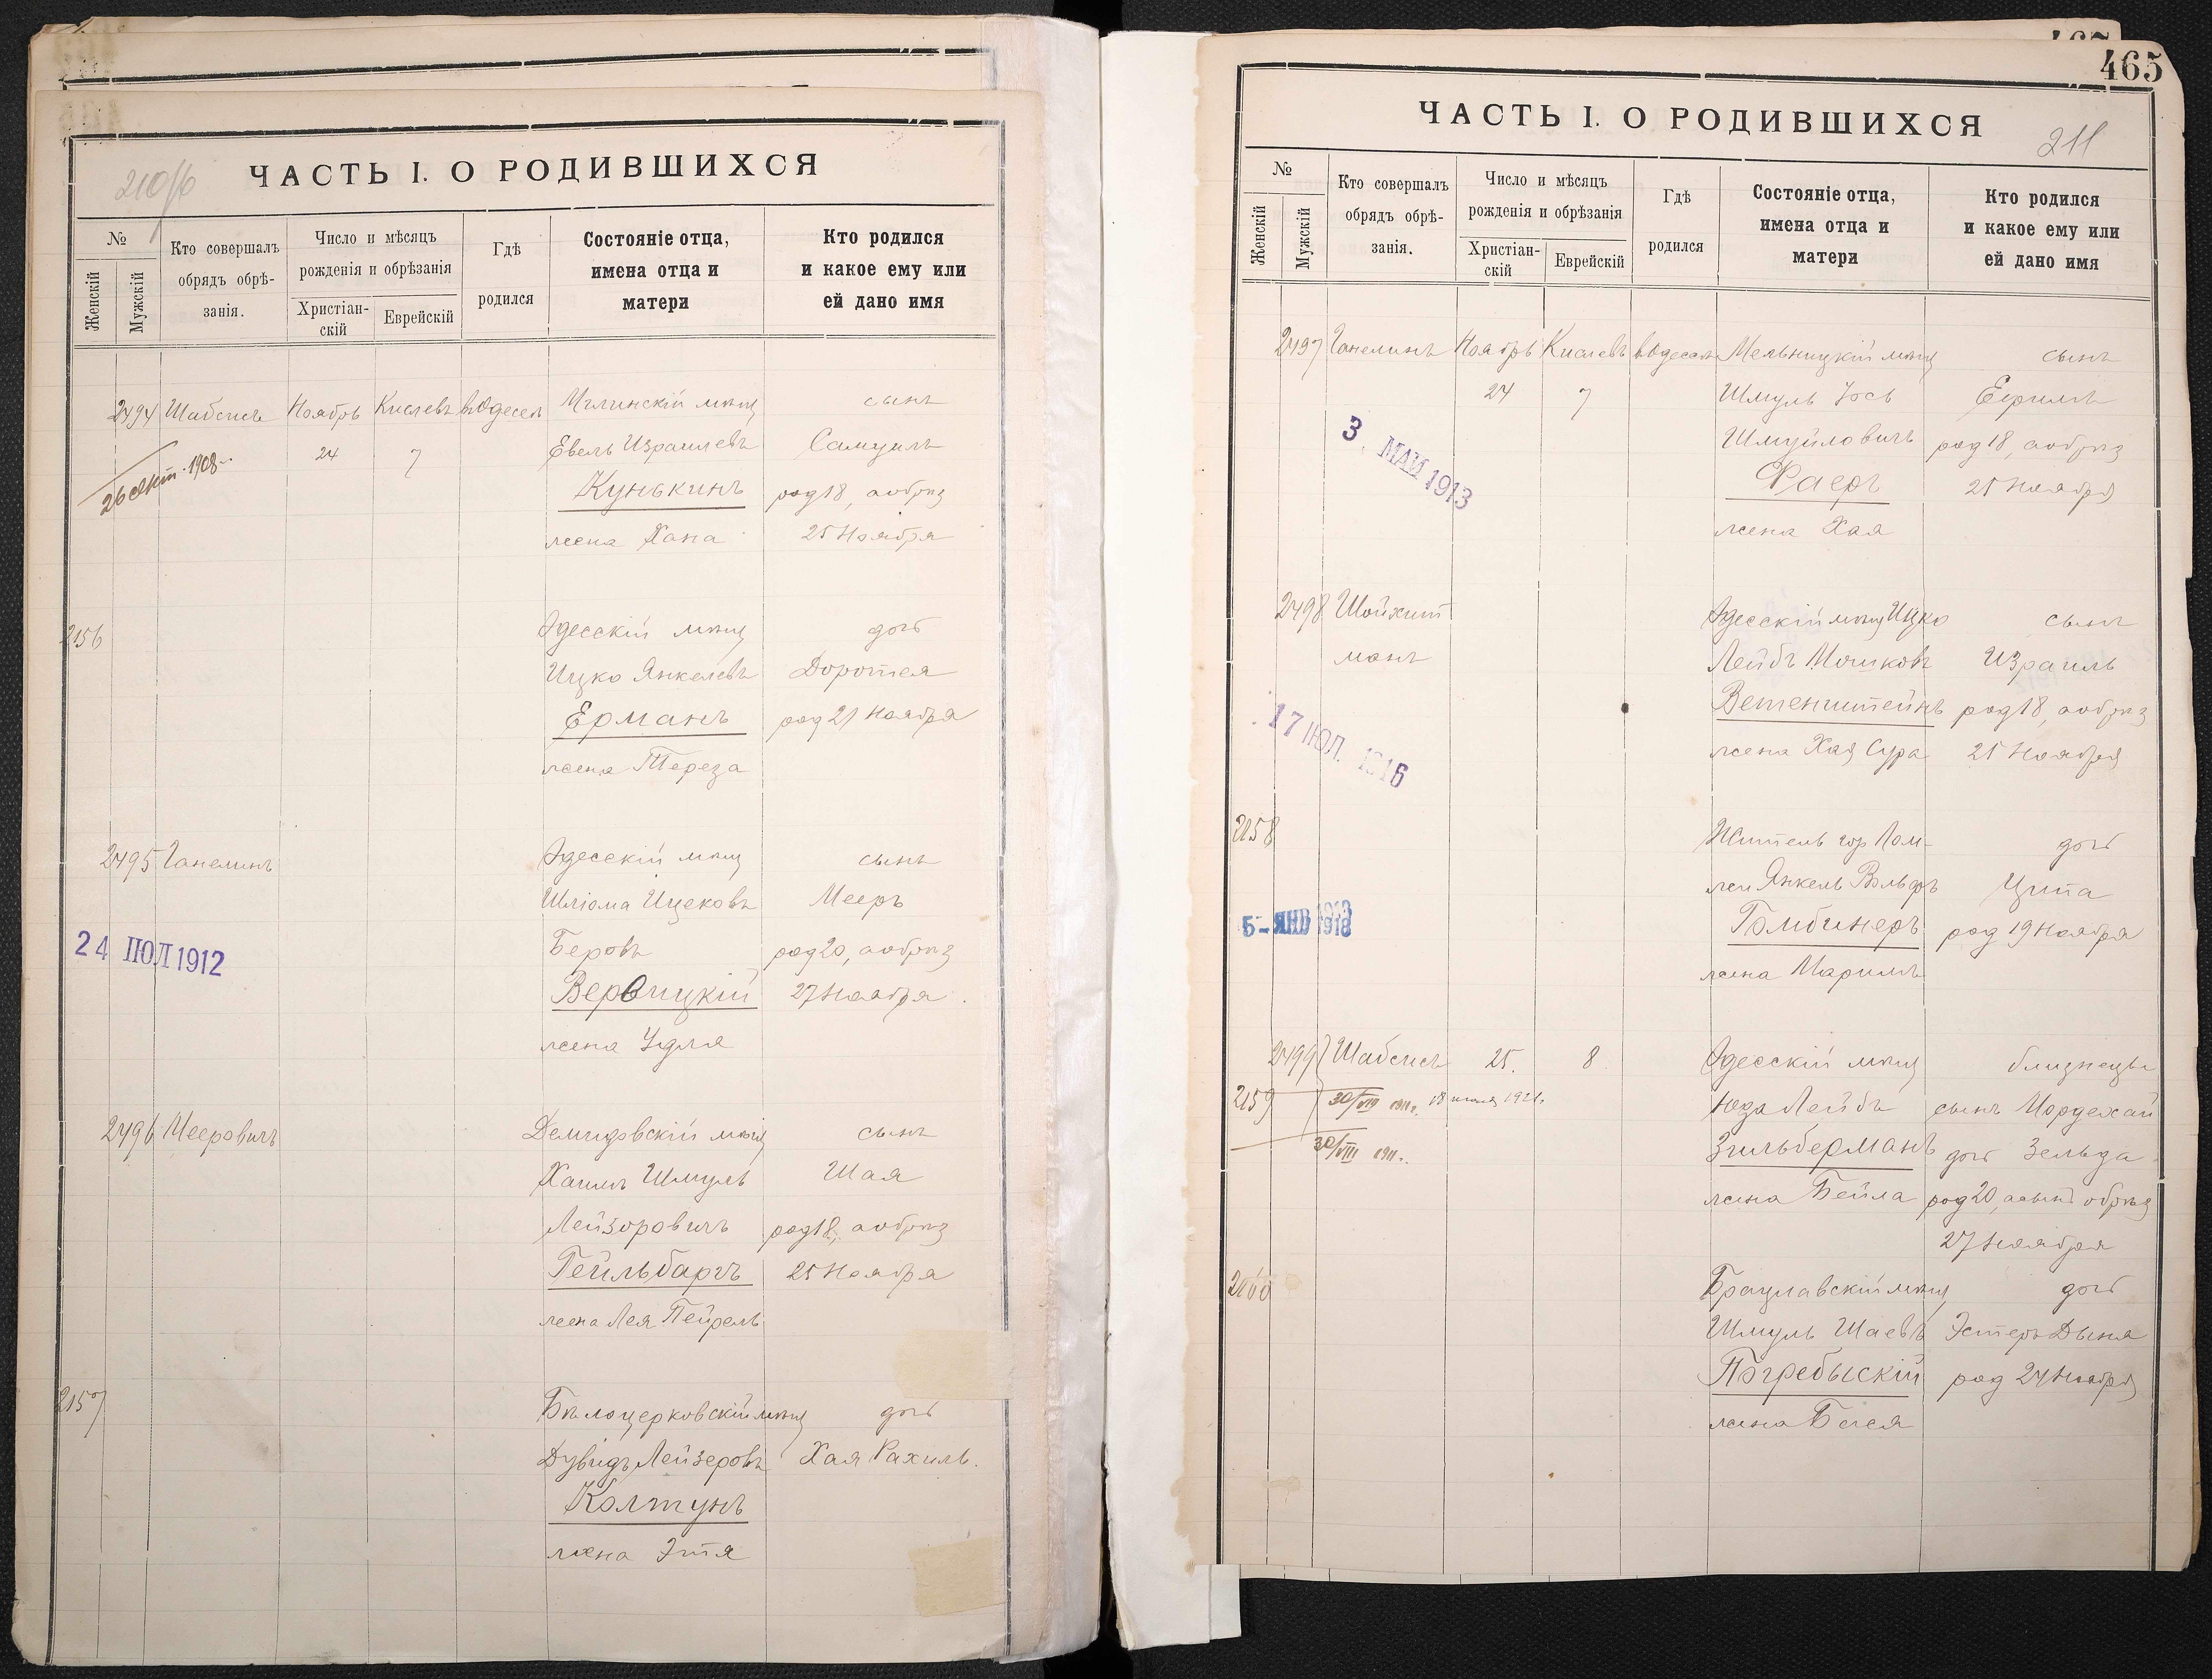 210/б
ЧАСТЬ I. О РОДИВШИХСЯ
№
Женскій
Мужскій
Кто совершалъ
обрядъ обрѣ-
занія.
Число и мѣсяцъ
рожденія и обрѣзанія
Христіан-
скій
Еврейскій
Гдѣ
родился
Состояніе отца,
имена отца и
матери
Кто родился
и какое ему или
ей дано имя
2494 Шабсисъ Ноябрь Кислевъ въ Одессѣ Мглинскій мѣщ сынъ
24 7 Евель Израилевъ Самуилъ
26 1908
Кунькинъ род 18, а обрѣз
жена Хана 25 Ноября
2156 Одесскій мѣщ дочь
Ицко Янкелевъ Доротея
Ерманъ род 21 Ноября
жена Тереза
2495 Ганелинъ Одесскій мѣщ сынъ
Шліома Ицековъ Мееръ
24 ІЮЛ 1912
Беровъ род 20, а обрѣз
27 Ноября
жена Удля
2496 Мееровичъ Демидовскій мѣщ сынъ
Хаимъ Шмуль Шая
Лейзоровичъ род 18, а обрѣз
Гейльбаргъ 25 Ноября
жена Лея Пейрель
2157 Бѣлоцерковскій мѣщ дочь
Дувидъ Лейзеровъ Хая Рахиль.
Колтунъ
жена Этя
465
211
ЧАСТЬ I. О РОДИВШИХСЯ
№
Женскій
Мужскій
Кто совершалъ
обрядъ обрѣ-
занія.
Число и мѣсяцъ
рожденія и обрѣзанія
Христіан-
скій
Еврейскій
Гдѣ
родился
Состояніе отца,
имена отца и
матери
Кто родился
и какое ему или
ей дано имя
2497 Ганелинъ Ноябрь Кислевъ въ Одессѣ Мельницкій мѣщ сынъ
24 7 Шмуль Іось Ефримъ
3. МАЙ 1913
Шмуйловичъ род 18, а обрѣз
Фаеръ 25 Ноября
жена Хая
2498 Шойхит Одесскій мѣщ Ицко сынъ
манъ Лейбъ Мошковъ Израиль
Ветенштейнъ род 18, а обрѣз
17 ІЮЛ. 1916
жена Хая Сура 25 Ноября
2158 Житель гор Лом- дочь
жи Янкель Вольфъ Ципа
5- ЯНВ 1918
Голбинеръ род 19 Ноября
жена Маримъ
2499 Шабсисъ 25. 8 Одесскій мѣщ близнецы
2159 30/VIII 1911г. 18 1921г. Юда Лейбъ сынъ Мордехай
30/VIII 1911г. Зильберманъ дочь Зельда
жена Бейла род 20, а сынъ обрѣз
27 Ноября
2160 Брацлавскій мѣщ дочь
Шмуль Шаевъ Эстеръ Дыня
Погребыскій род 24 Ноября
жена Бася